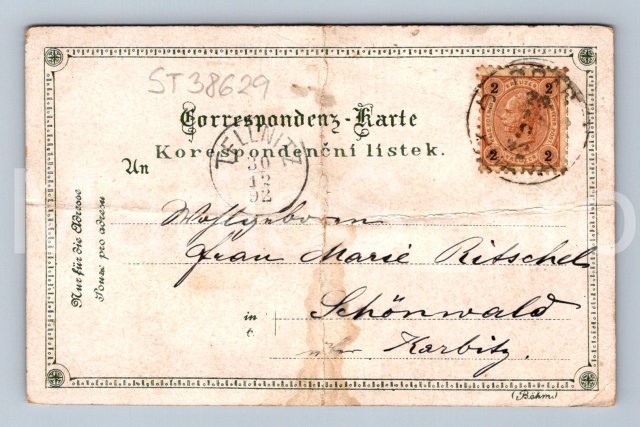 ST38629
2 2
2 2
Correspondenz-Karte
Korespondenční lístek.
TELLNITZ
30
12
92
An
Wohlgeboren
Frau Marie Ritschel
in Schönwald
v
Karbitz.
Nur für die Adresse
Pouze pro adresu
(Böhm.)